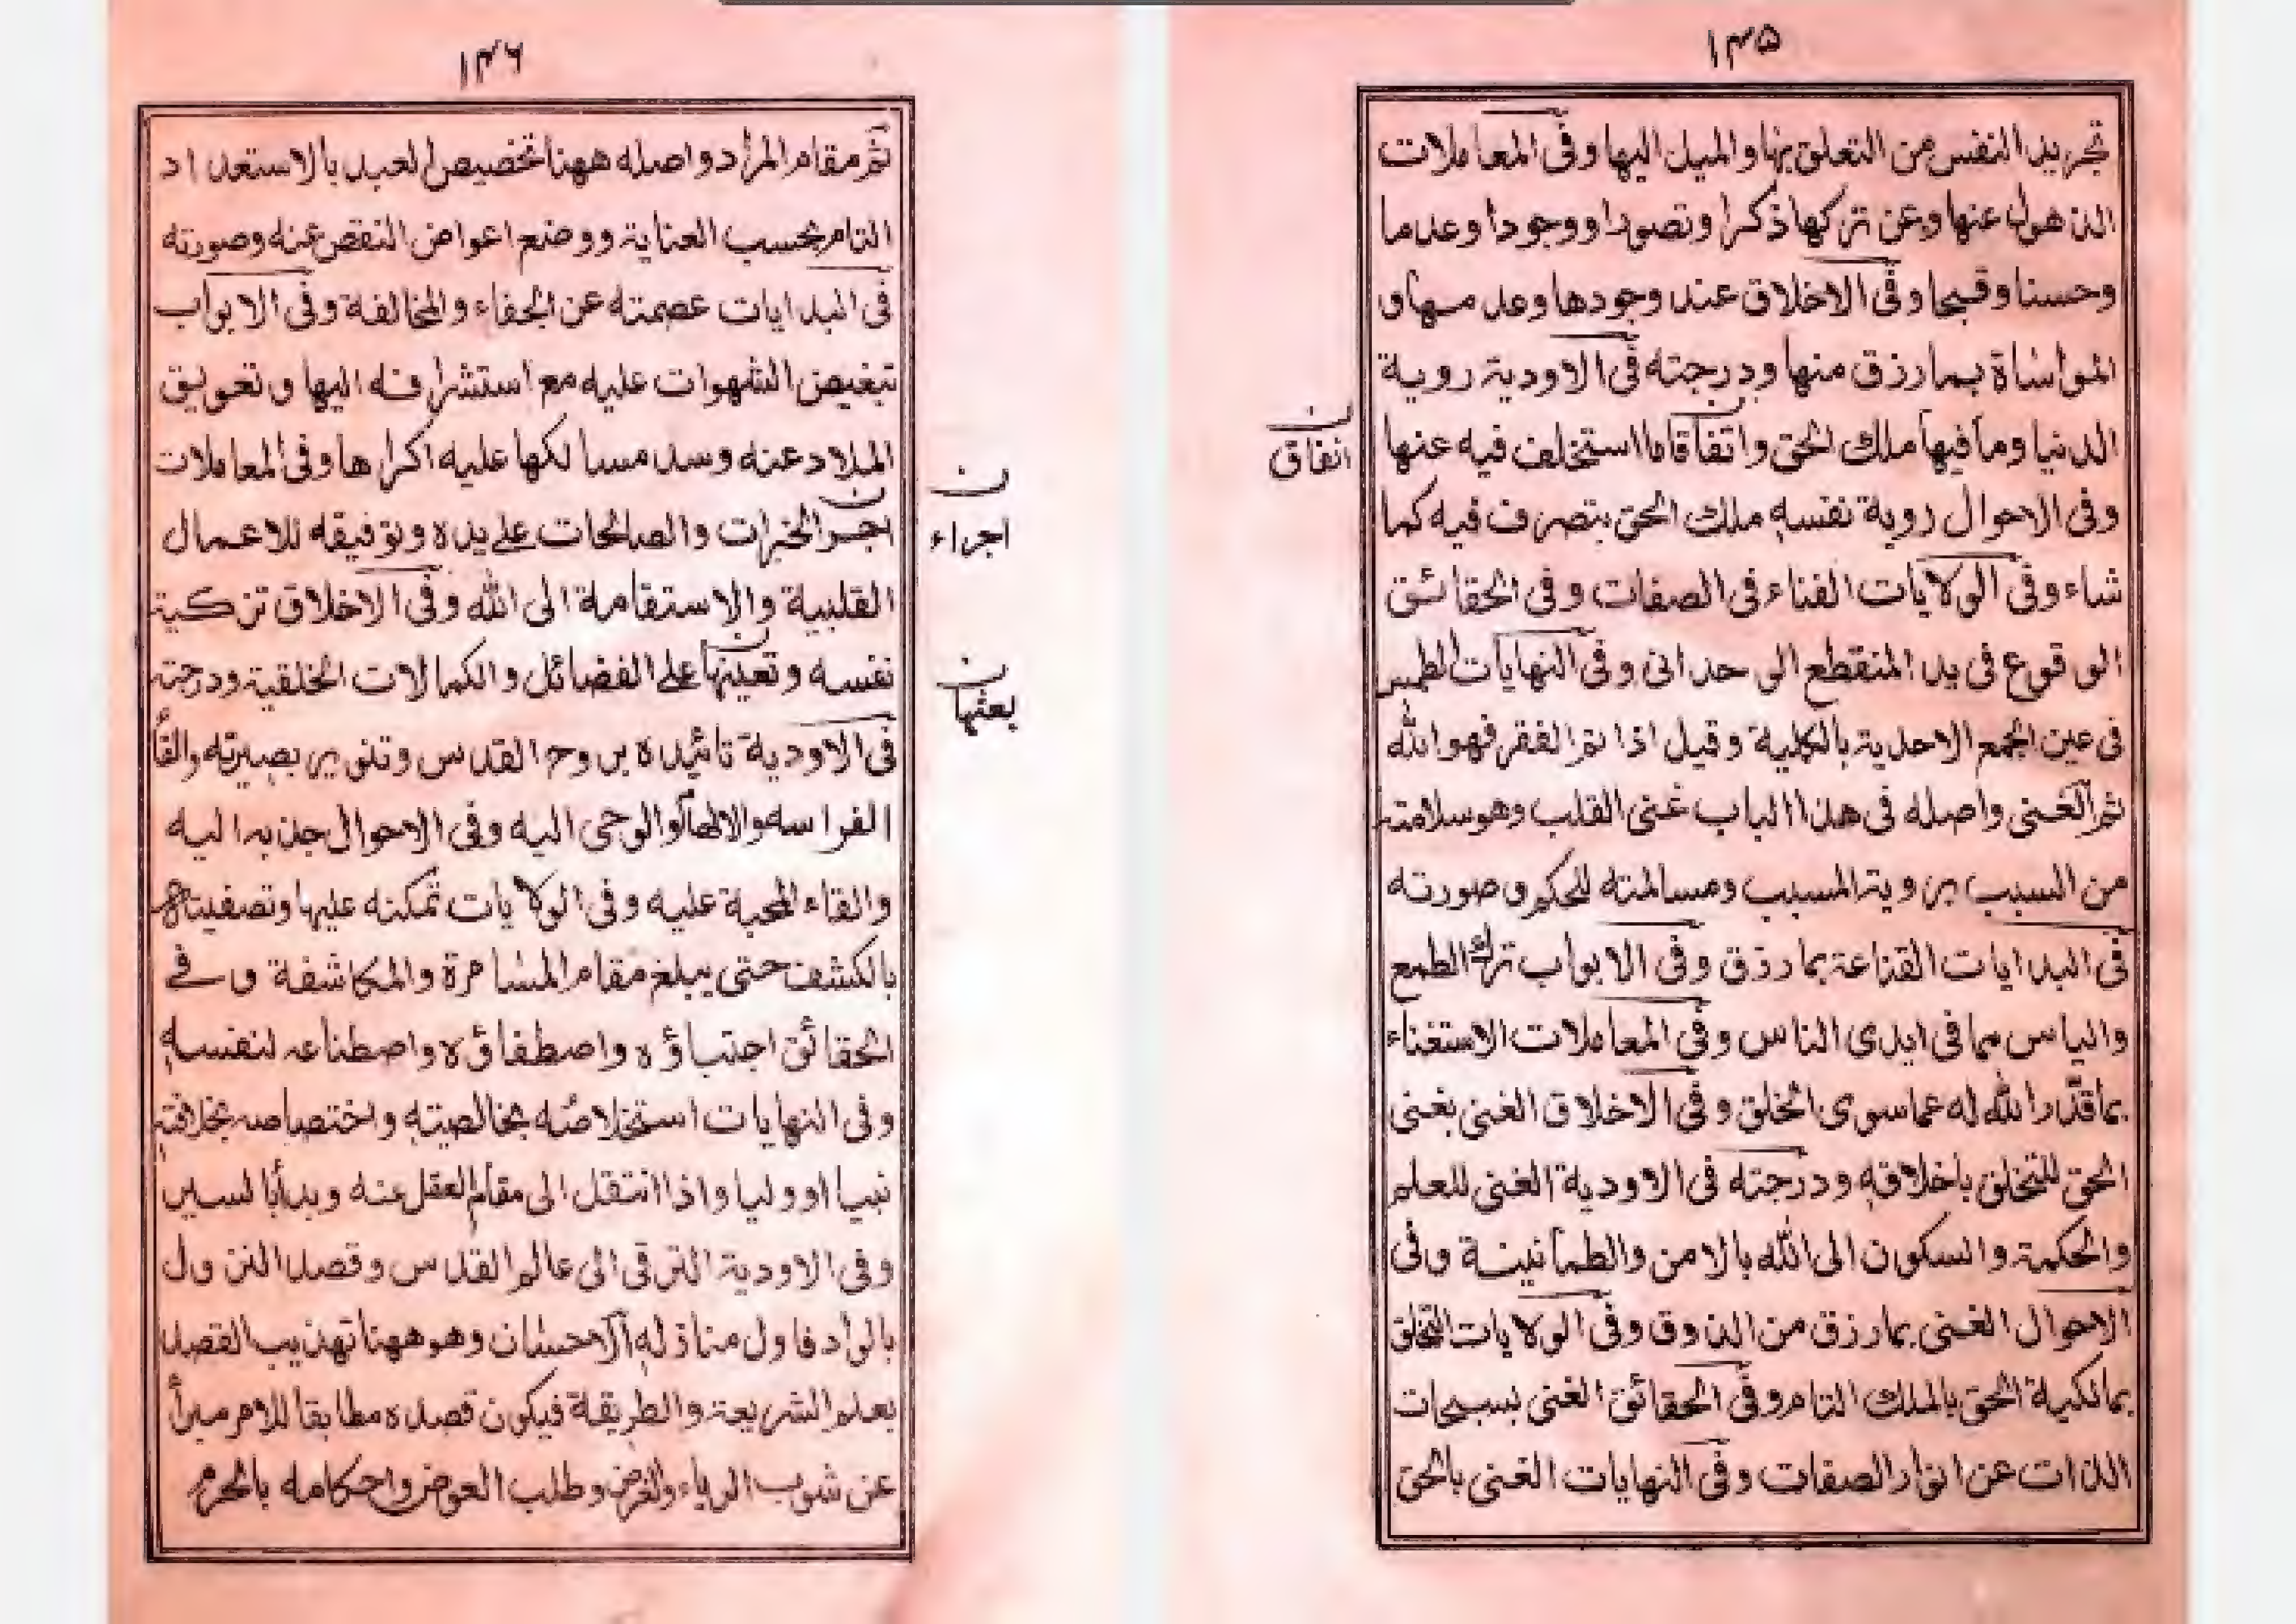 ۱۴۵
تجريد النفس من التعلق بها والميل اليها وفى المعاملات
الذهول عنها وعن تركها ذكرا وتصورا ووجودا وعدما
وحسنا وقبحا وفى الاخلاق عند وجودها وعدمها و
المواساة بما رزق منها ودرجته فى الاودية روية
الدنيا وما فيها ملك الحق واتفاقاما استخلف فيه عنها
ن
انفاق
وفى الاحوال روية نفسه ملك الحق يتصرف فيه كما
شاء وفى الولايات الفناء فى الصفات وفى الحقائق
الوقوع فى يد المنقطع الوحدانى وفى النهايات الطمس
فى عين الجمع الاحدية بالكلية وقيل اذا تم الفقر فهو الله
ثم الغنى واصله فى هذا الباب غنى القلب وهو سلامته
من السبب برويته المسبب ومسالمته للحكم وصورته
فى البدايات القناعة بما رزق وفى الابواب ترك الطمع
والياس مما فى ايدى الناس وفى المعاملات الاستغناء
بما قدّر الله له عما سوى الخلق وفى الاخلاق الغنى بغنى
الحق للتخلق باخلاقه ودرجته فى الاودية الغنى للعلم
والحكمة والسكون الى الله بالامن والطمأنينة وفى
الاحوال الغنى بما رزق من الذوق وفى الولايات التخلق
بمالكية الحق بالملك التام وفى الحقائق الغنى بسبحات
الذات عن انوار الصفات وفى النهايات الغنى بالحق
۱۴۶
ثم مقام المراد واصله ههنا تخصيص العبد بالاستعداد
التام بحسب العناية ووضع اعواض النقص عنه وصورته
فى البدايات عصمته عن الجفاء والمخالفة وفى الابواب
تبغيض الشهوات عليه مع استشرافه اليها وتعويق
الملاذ عنه وسد مسالكها عليه اكراها وفى المعاملات
اجر الخيرات والصالحات على يده وتوفيقه للاعمال
ن
اجراء
القلبية والاستقامة الى الله وفى الاخلاق تزكية
نفسه وتعينها على الفضائل والكمالات الخلقية ودرجته
ن
بعثها
فى الاودية تائيده بروح القدس وتنوير بصيرته والقأ
الفراسه والالهام والوحى اليه وفى الاحوال جذبه اليه
والقاء المحبة عليه وفى الولايات تمكنه عليها وتصفيته
بالكشف حتى يبلغ مقام المسامرة والمكاشفة وفى
الحقائق اجتباؤه واصطفاؤه واصطناعه لنفسه
وفى النهايات استخلاصه بخالصيته واختصاصه بخلافته
نبيا او وليا واذا انتقل الى مقام العقل عنه وبدأ بالسير
وفى الاودية الترقى الى عالم القدس وقصد النزول
بالواد فاول منازله الاحسان وهو ههنا تهذيب القصد
بعلم الشريعة والطريقة فيكون قصده مطابقا للامر مبرأ
عن شوب الرياء والغرض وطلب العوض واحكامه بالحزم